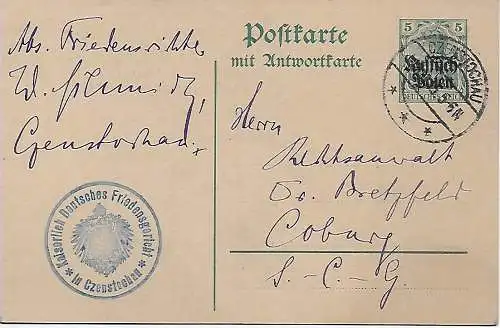 Abs. Friedensrichter
W. Schmidt,
Czenstochau
Postkarte
mit Antwortkarte
5 5
DEUTSCHES REICH
Russisch-
Polen
CZENSTOCHAU
Herrn
Rechtsanwalt
Dr. Bretzfeld
Coburg
S.-C.-G.
Kaiserlich Deutsches Friedensgericht
in Czenstochau